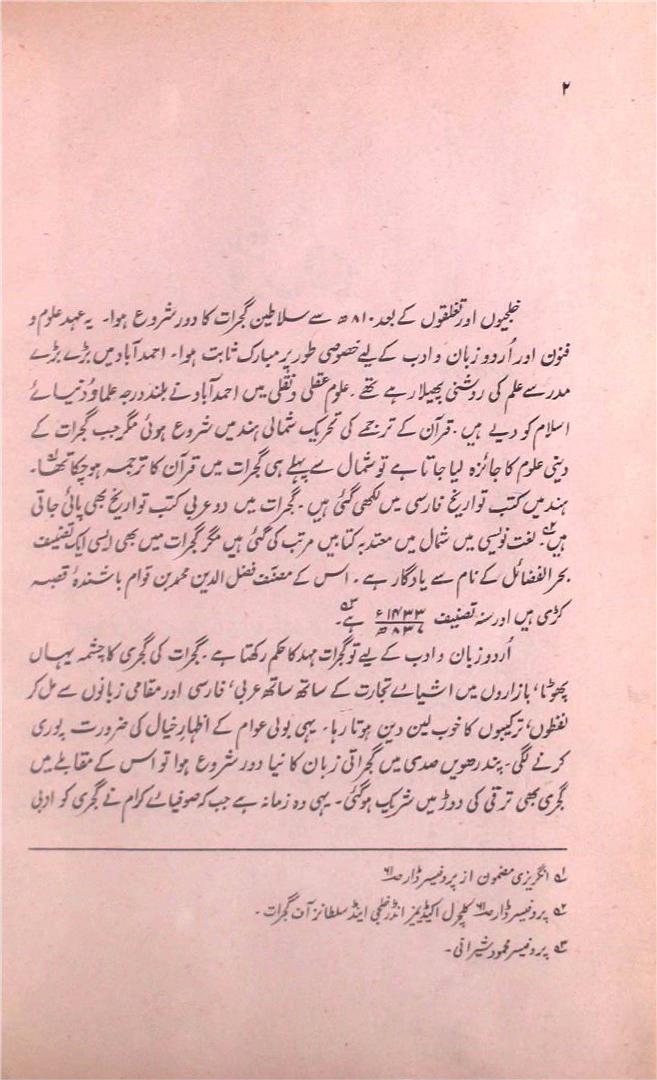 ۲
خلجیوں اور تغلقوں کے بعد ۸۱۰ھ سے سلاطین گجرات کا دور شروع ہوا۔ یہ عہد علوم و
فنون اور اُردو زبان و ادب کے لیے خصوصی طور پر مبارک ثابت ہوا۔ احمدآباد میں بڑے بڑے
مدرسے علم کی روشنی پھیلا رہے تھے۔ علوم عقلی و نقلی میں احمدآباد نے بلند درجہ علماء دُنیائے
اسلام کو دیے ہیں۔ قرآن کے ترجمے کی تحریک شمالی ہند میں شروع ہوئی مگر جب گجرات کے
دینی علوم کا جائزہ لیا جاتا ہے تو شمال سے پہلے ہی گجرات میں قرآن کا ترجمہ ہو چکا تھا۱؎۔
ہند میں کتب تواریخ فارسی میں لکھی گئی ہیں۔ گجرات میں دو عربی کتب تواریخ بھی پائی جاتی
ہیں۲؎۔ لغت نویسی میں شمال میں معتد بہ کتابیں مرتب کی گئی ہیں مگر گجرات میں بھی ایسی ایک تصنیف
بحر الفضائل کے نام سے یادگار ہے۔ اس کے مصنف فضل الدین محمد بن قوام باشندۂ قصبہ
کڑی ہیں اور سنہ تصنیف ۱۴۳۳ء / ۸۳۷ھ ہے۳؎۔
اُردو زبان و ادب کے لیے تو گجرات مہد کا حکم رکھتا ہے۔ گجرات کی گجری کا چشمہ یہاں
پھوٹا، بازاروں میں اشیائے تجارت کے ساتھ ساتھ عربی، فارسی اور مقامی زبانوں سے مل کر
لفظوں، ترکیبوں کا خوب لین دین ہوتا رہا۔ یہی بولی عوام کے اظہارِ خیال کی ضرورت پوری
کرنے لگی۔ پندرھویں صدی میں گجراتی زبان کا نیا دور شروع ہوا تو اس کے مقابلے میں
گجری بھی ترقی کی دوڑ میں شریک ہو گئی۔ یہی وہ زمانہ ہے جب کہ صوفیائے کرام نے گجری کو ادبی
۱؎ انگریزی مضمون از پروفیسر ڈار صـ۶۱
۲؎ پروفیسر ڈار صـ۶۱ کلچرل اکیڈیمیز انڈر خلجی اینڈ سلطانز آف گجرات۔
۳؎ پروفیسر محمود شیرانی۔